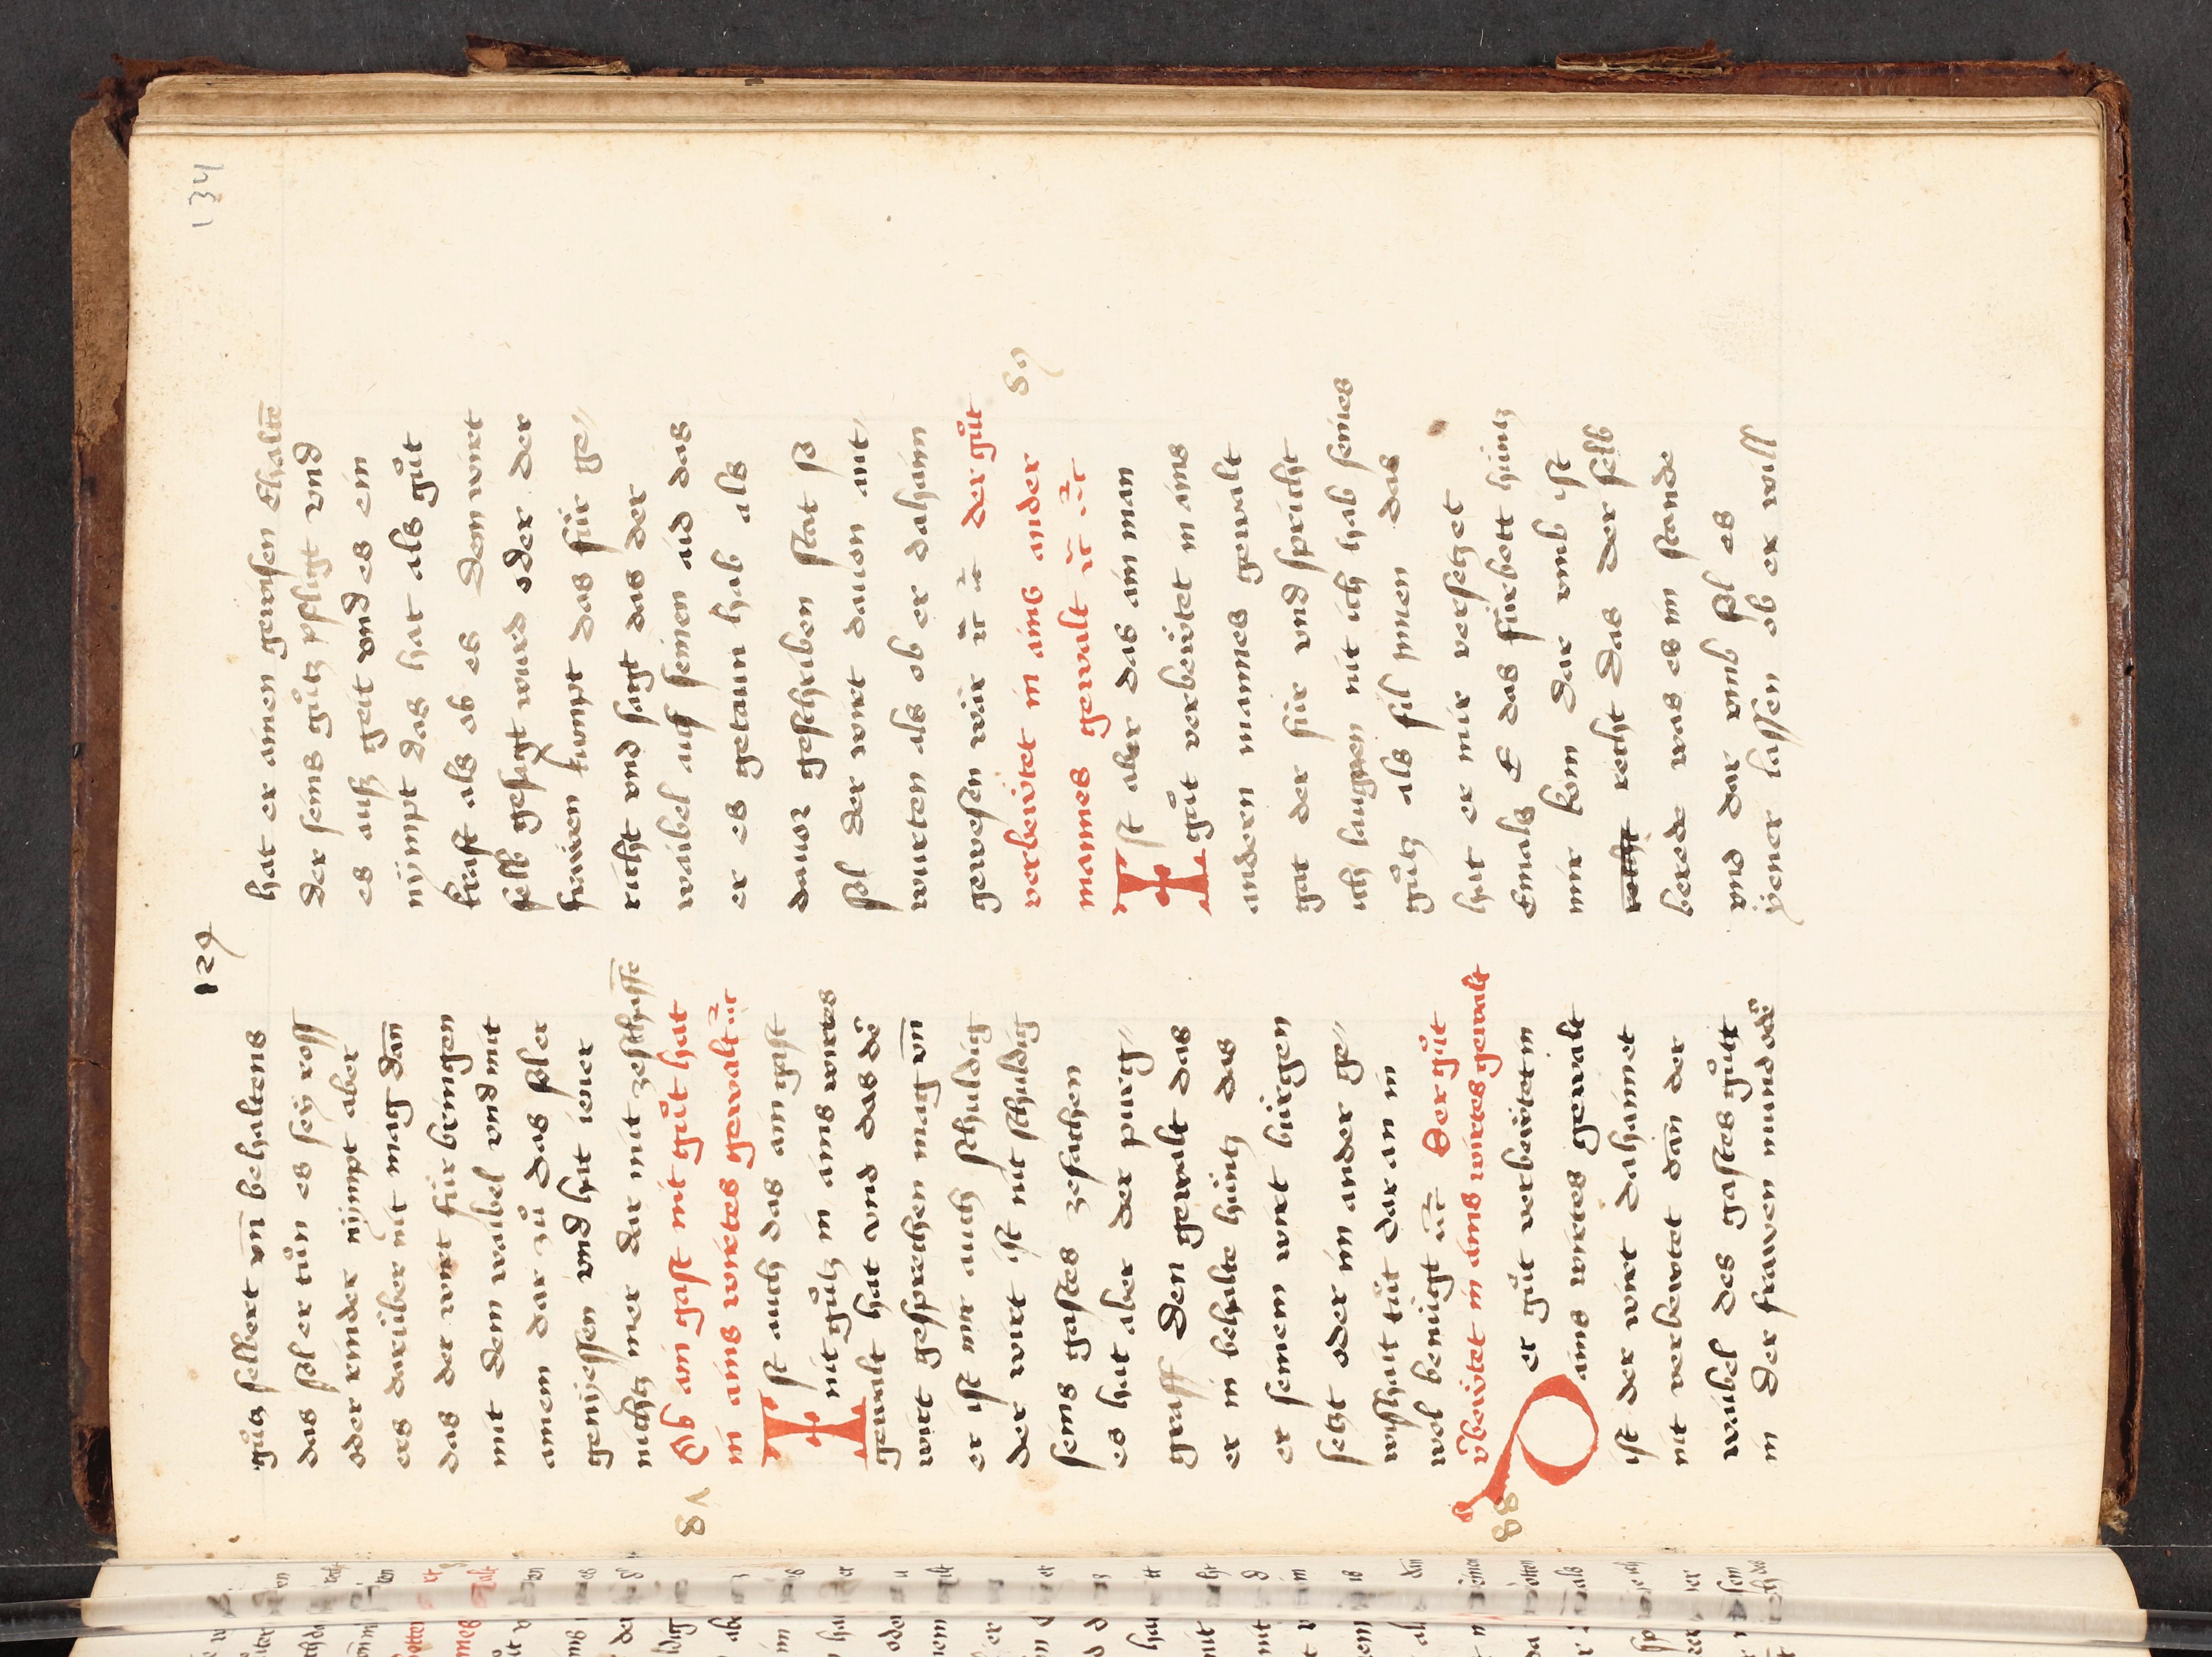 134
129
gůtz selbert vn̄ behaltens
das sol er tůn es seÿ ross
oder rinder nÿmpt aber
ers darüber nit mag dan̄
das der wirt für bringen
mit dem waibel vnd mit
ainem dar zů das sol er
genÿessen vnd hat iener
nichtz mer dar mit zeschaffē
81
Ob ain gast nit gůt hat
in ains wirtes gewalt
Ist auch das ain gast
nit gůtz in ains wirtes
gewalt hat vnd das der
wirt gesprechen mag vn̄
er ist mir auch schuldig
der wirt ist nit schuldig
seins gastes zesachen
es hat aber der purg〃
graff den gewalt das
er in behalte hüntz das
er seinem wirt bürgen
setzt oder im ander ge〃
wishait tůt dar an in
wol benügt Der gůt
verbewtet in ains wirtes gewalt
88
Der gůt verbewtet in
ains wirtes gewalt
ist der wirt dahaimet
nit verbewtet dan̄ der
waibel des gastes gůtt
in der frawen mund oder
hat er ainen gewisen Ehaltē
der seins gůtz pfligt vnd
es auß geit vnd es ein
nÿmpt das hat als gůt
kraft als ob es dem wirt
selb gesagt wurd oder der
frawen kumpt das für ge〃
richt vnd sagt das der
waibel auff seinen aid das
er es getaun hab als
dauor geschriben stat so
sol der wirt dauon ant〃
wurten als ob er dahaim
gewesen wär der gůt
verbewtet in ains ander
mannes gewalt
89
Ist aber das ain man
gůt verbewtet in ains
anderen mannes gewalt
gat der für vnd spricht
ich laugnen nit ich hab seines
gůtz als fil ynnen das
hat er mir versetzet
Emals E das fürbott hüntz
mir kom dar vmb ist
recht das der selb
berede was es im stande
vnd dar vmb sol es
ÿener lassen ob er will